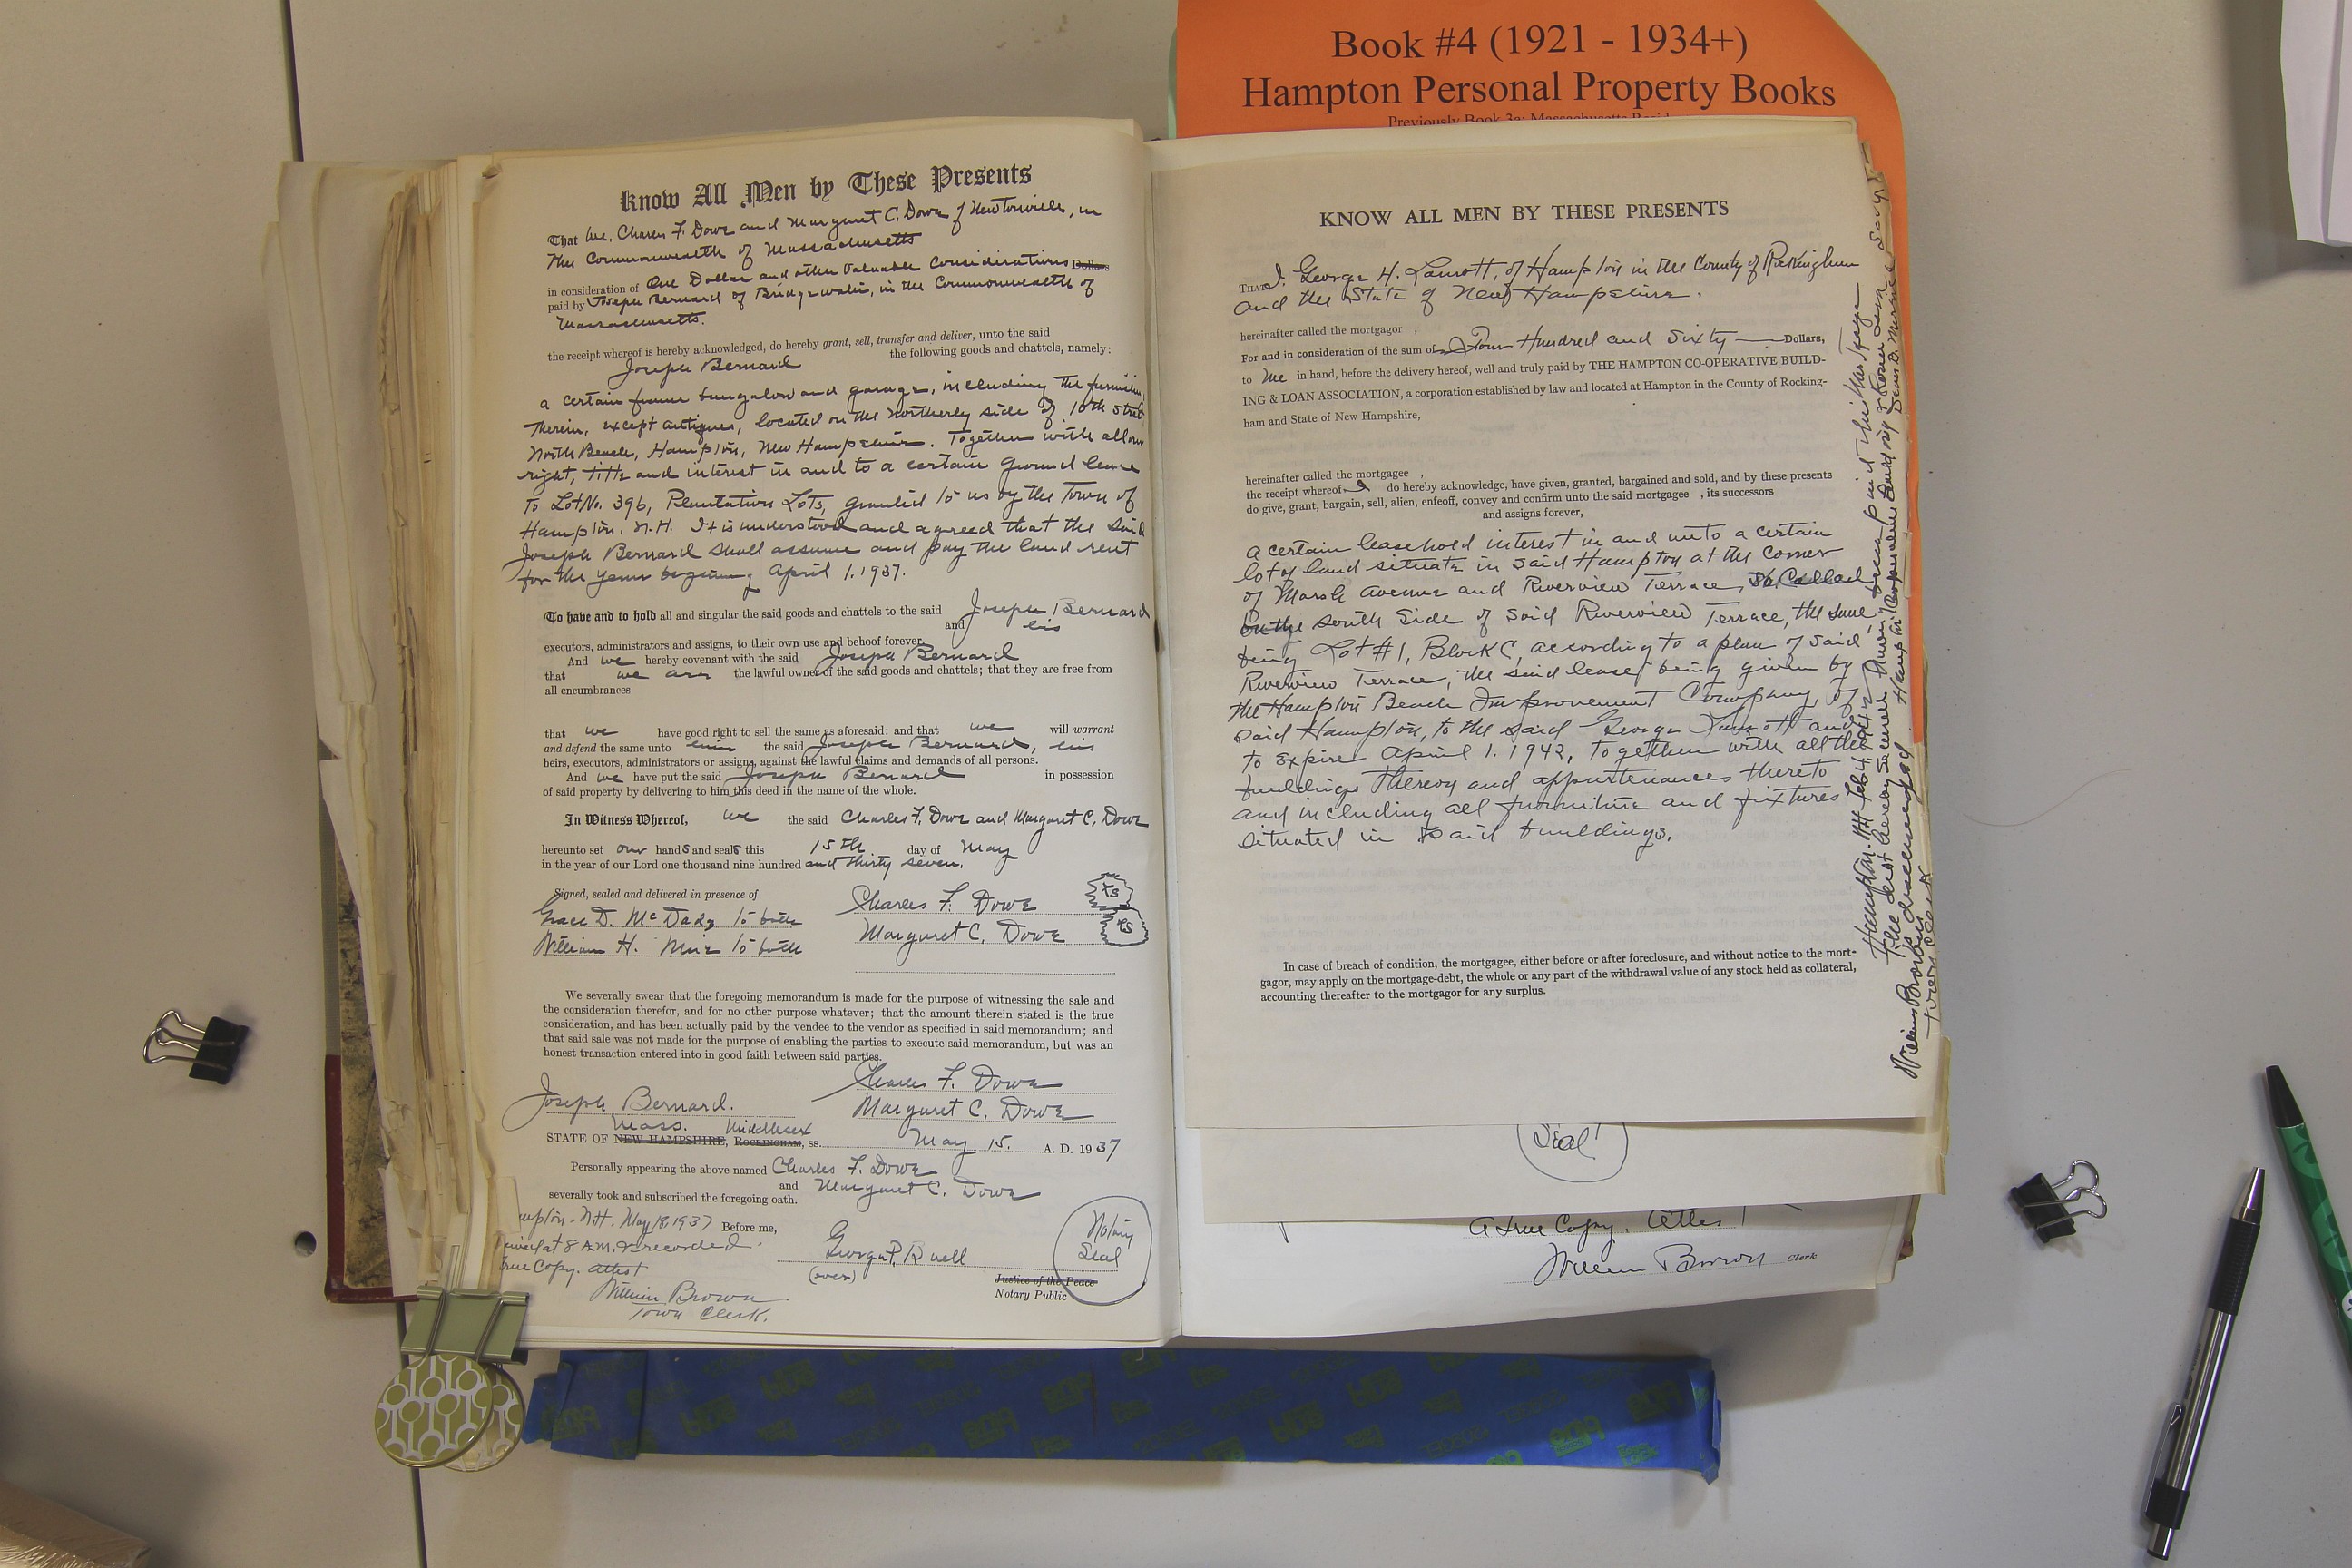 Book #4 (1921 - 1934+)
Hampton Personal Property Books
Know All Men by These Presents
That We, Charles F. Dowe and Margaret C. Dowe of Newtonville, in
The Commonwealth of Massachusetts
in consideration of One Dollar and other Valuable Considerations Dollars
paid by Joseph Bernard of Bridgewater, in the Commonwealth of
Massachusetts.
the receipt whereof is hereby acknowledged, do hereby grant, sell, transfer and deliver, unto the said
Joseph Bernard the following goods and chattels, namely:
a certain frame bungalow and garage, including the furnishing
Therein, except antiques, located on the Northerly side of 10th Street
North Beach, Hampton, New Hampshire. Together with all our
right, title and interest in and to a certain Ground lease
To Lot No. 396, Plantation Lots, granted to us by the Town of
Hampton. N.H. It is understood and agreed that the said
Joseph Bernard shall assume and pay the land rent
for the year beginning April 1. 1937.
To have and to hold all and singular the said goods and chattels to the said Joseph Bernard
and his
executors, administrators and assigns, to their own use and behoof forever.
And we hereby covenant with the said Joseph Bernard
that we are the lawful owner of the said goods and chattels; that they are free from
all encumbrances
that we have good right to sell the same as aforesaid: and that we will warrant
and defend the same unto him the said Joseph Bernard, his
heirs, executors, administrators or assigns, against the lawful claims and demands of all persons.
And we have put the said Joseph Bernard in possession
of said property by delivering to him this deed in the name of the whole.
In Witness Whereof, we the said Charles F. Dowe and Margaret C. Dowe
hereunto set our hands and seals this 15th day of May
in the year of our Lord one thousand nine hundred and thirty seven.
Signed, sealed and delivered in presence of
Grace D. McDady to both
William H. Muir to both
Charles F. Dowe LS
Margaret C. Dowe LS
We severally swear that the foregoing memorandum is made for the purpose of witnessing the sale and
the consideration therefor, and for no other purpose whatever; that the amount therein stated is the true
consideration, and has been actually paid by the vendee to the vendor as specified in said memorandum; and
that said sale was not made for the purpose of enabling the parties to execute said memorandum, but was an
honest transaction entered into in good faith between said parties.
Charles F. Dowe
Joseph Bernard. Margaret C. Dowe
Mass. Middlesex
STATE OF NEW HAMPSHIRE, ROCKINGHAM, ss. May 15. A. D. 1937
Personally appearing the above named Charles F. Dowe
and Margaret C. Dowe
severally took and subscribed the foregoing oath.
mpton. N.H. May 18, 1937 Before me,
at 8 A.M. & recorded.
True Copy. attest
William Brown
Town Clerk.
George P. Ruell
(over)
Notary
Seal
Justice of the Peace
Notary Public
KNOW ALL MEN BY THESE PRESENTS
THAT I, George H. Lamott, of Hampton in the County of Rockingham
and the State of New Hampshire.
hereinafter called the mortgagor ,
For and in consideration of the sum of Four Hundred and Sixty Dollars,
to me in hand, before the delivery hereof, well and truly paid by THE HAMPTON CO-OPERATIVE BUILD-
ING & LOAN ASSOCIATION, a corporation established by law and located at Hampton in the County of Rocking-
ham and State of New Hampshire,
hereinafter called the mortgagee ,
the receipt whereof I do hereby acknowledge, have given, granted, bargained and sold, and by these presents
do give, grant, bargain, sell, alien, enfeoff, convey and confirm unto the said mortgagee , its successors
and assigns forever,
a certain leasehold interest in and unto a certain
lot of land situate in said Hampton at the corner
of Marsh Avenue and Riverview Terrace, So Called
on the South Side of said Riverview Terrace, the same
being Lot #1, Block C, according to a plan of said
Riverview Terrace, the said lease being given by
the Hampton Beach Improvement Company, of
said Hampton, to the said George Lamott and
to expire April 1. 1942, together with all the
buildings Thereon and appurtenances thereto
and including all furniture and fixtures
situated in said buildings.
In case of breach of condition, the mortgagee, either before or after foreclosure, and without notice to the mort-
gagor, may apply on the mortgage-debt, the whole or any part of the withdrawal value of any stock held as collateral,
accounting thereafter to the mortgagor for any surplus.
Hampton. NH Feb 4, 1942
The debt hereby secured having been paid this mortgage
is discharged.
William Brown
Town Clerk
Seal
A true Copy. Attest
William Brown Clerk